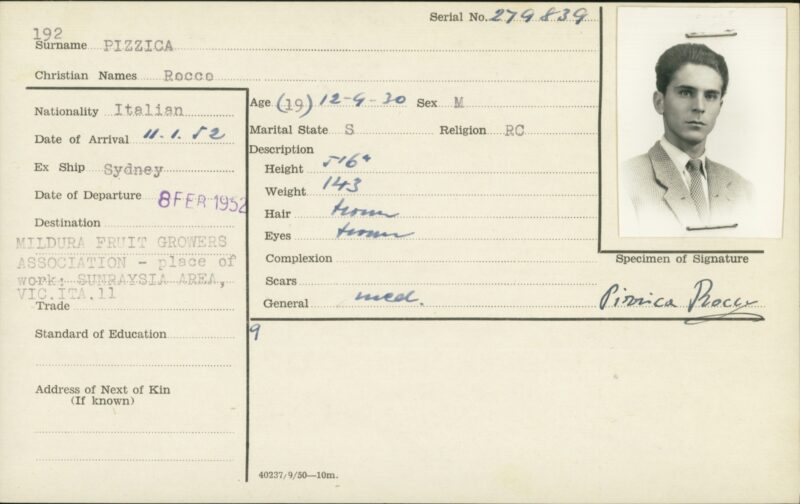 192
Serial No. 279839
Surname PIZZICA
Christian Names Rocco
Nationality Italian
Date of Arrival 11.1.52
Ex Ship Sydney
Date of Departure 8 FEB 1952
Destination
MILDURA FRUIT GROWERS
ASSOCIATION - place of
work: SUNRAYSIA AREA,
VIC.ITA.11
Trade
Standard of Education
Address of Next of Kin
(If known)
Age (19) 12-9-30 Sex M
Marital State S Religion RC
Description
Height 5'6"
Weight 143
Hair brown
Eyes brown
Complexion
Scars
General med.
9
Specimen of Signature
Pizzica Rocco
40237/9/50—10m.